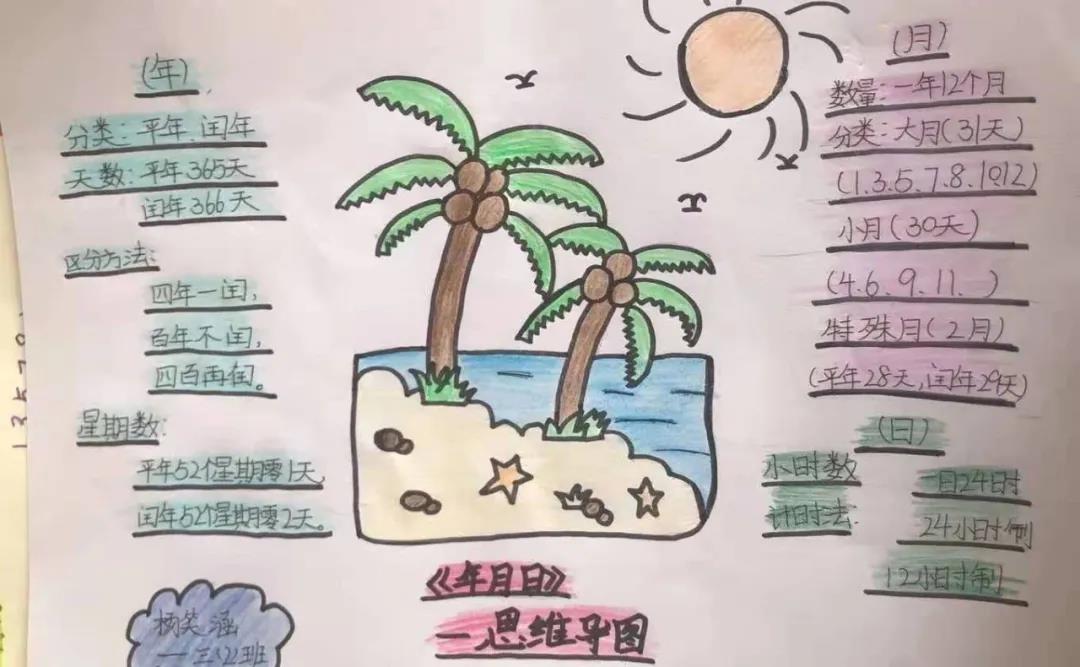 (年)
分类:平年、闰年
天数:平年365天
闰年366天
区分方法:
四年一闰,
百年不闰,
四百再闰。
星期数:
平年52个星期零1天,
闰年52个星期零2天。
(月)
数量:一年12个月
分类:大月(31天)
(1.3.5.7.8.10.12)
小月(30天)
(4.6.9.11.)
特殊月(2月)
(平年28天,闰年29天)
(日)
小时数
一日24时
计时法:
24小时制
12小时制
《年月日》
—思维导图
杨笑涵
—三(2)班
13578